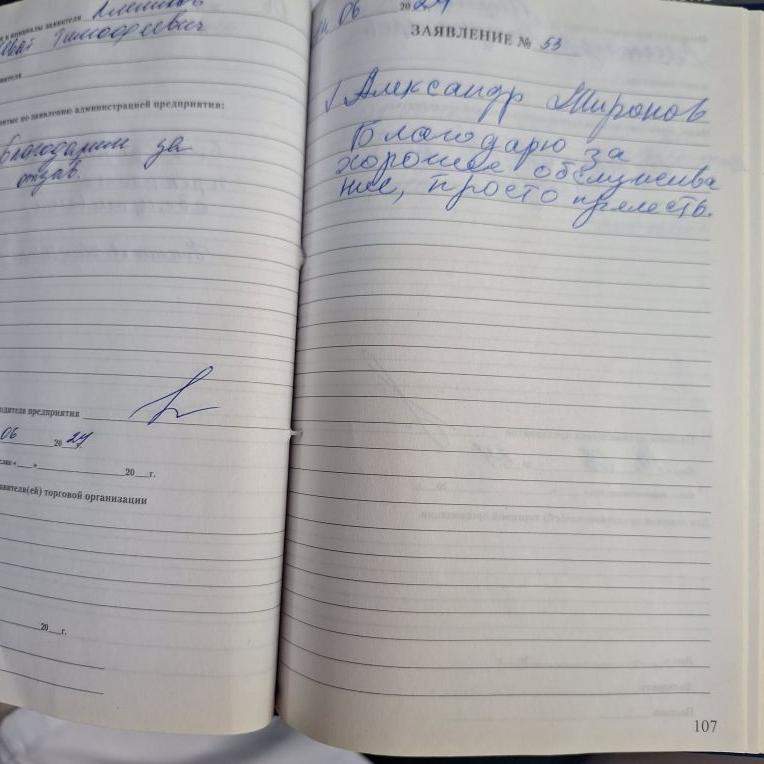 и инициалы заявителя
Тимофеевич
принятые по заявлению администрацией предприятия:
Благодарим за
отзыв.
предприятия
06 2024
20 г.
торговой организации
20 г.
06 2024
ЗАЯВЛЕНИЕ № 53
Александр Миронов
Благодарю за
хорошее обслужива
ние, просто прелесть.
107